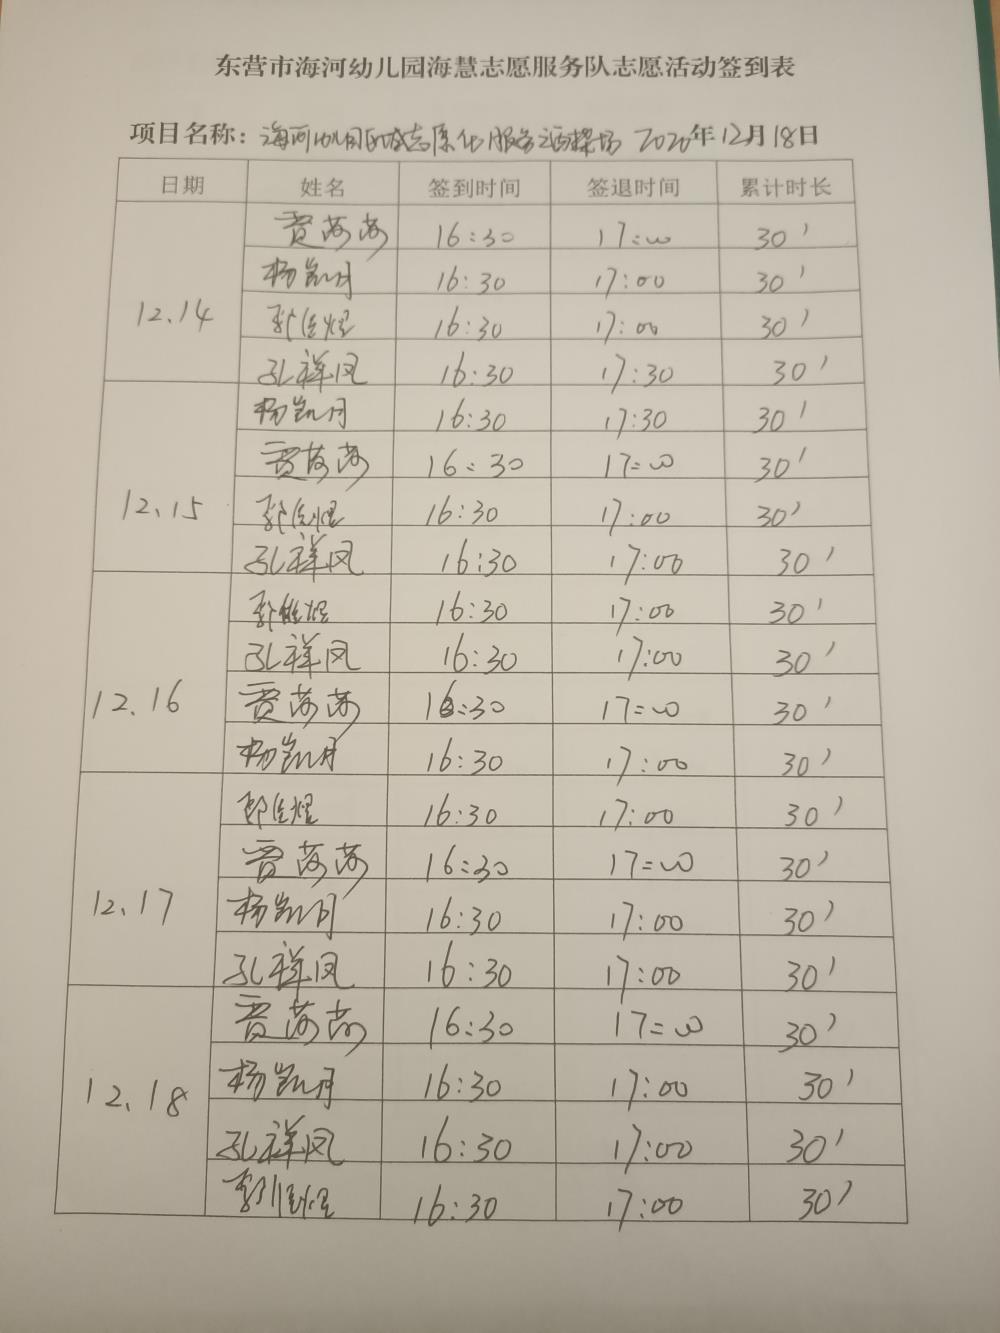 东营市海河幼儿园海慧志愿服务队志愿活动签到表
项目名称：海河幼儿园 志愿 服务 2020年12月18日
日期 姓名 签到时间 签退时间 累计时长
12.14 贾 16:30 17:00 30'
杨凯月 16:30 17:00 30'
16:30 17:00 30'
孔祥凤 16:30 17:30 30'
12.15 杨凯月 16:30 17:30 30'
贾 16:30 17:00 30'
16:30 17:00 30'
孔祥凤 16:30 17:00 30'
12.16 16:30 17:00 30'
孔祥凤 16:30 17:00 30'
贾 16:30 17:00 30'
杨凯月 16:30 17:00 30'
12.17 16:30 17:00 30'
贾 16:30 17:00 30'
杨凯月 16:30 17:00 30'
孔祥凤 16:30 17:00 30'
12.18 贾 16:30 17:00 30'
杨凯月 16:30 17:00 30'
孔祥凤 16:30 17:00 30'
16:30 17:00 30'